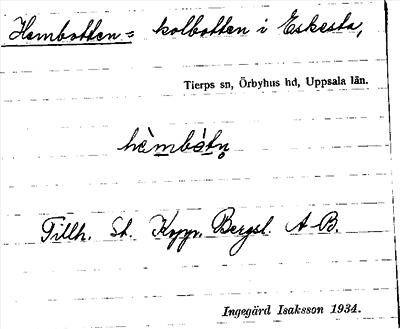 Hembotten = kolbotten i Eskesta,
Tierps sn, Örbyhus hd, Uppsala län.
hèmbòtn̥
Tillh. St. Kopp. Bergsl. A-B.
Ingegärd Isaksson 1934.